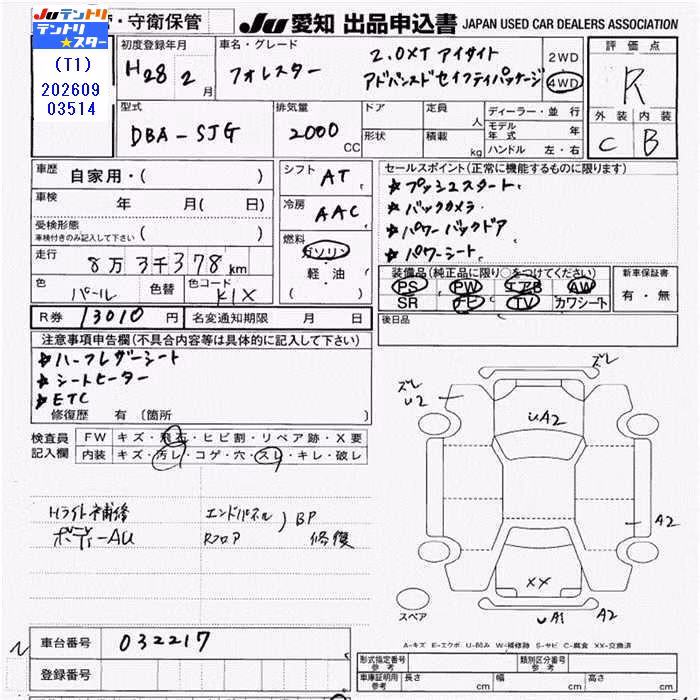 Juテントリ
テントリ☆スター
(T1)
202609
03514
・守衛保管
Ju 愛知 出品申込書 JAPAN USED CAR DEALERS ASSOCIATION
初度登録年月 車名・グレード 評価点
H28 2月 フォレスター 2.0XT アイサイト
アドバンスドセイフティパッケージ
2WD
4WD
R
外装 内装
C B
型式 排気量 ドア 定員 人 ディーラー・並行
DBA-SJG 2000 CC 形状 積載 kg モデル年式 年
ハンドル 左・右
車歴 自家用・( )
車検 年 月( 日)
受検形態 ( )
車検付きのみ記入して下さい
走行 8万3千378km
色 パール 色替 色コード K1X
シフト AT
冷房 AAC
燃料 ガソリン
軽・油
( )
セールスポイント(正常に機能するものに限ります)
★プッシュスタート
★バックカメラ
★パワーバックドア
★パワーシート
装備品(純正品に限り○をつけてください)
PS PW エアB AW
SR ナビ TV カワシート
新車保証書
有・無
R券 13010円 名変通知期限 月 日
後日品
注意事項申告欄(不具合内容等は具体的に記入して下さい)
★ハーフレザーシート
★シートヒーター
★ETC
修復歴 有(箇所
検査員 FW キズ・飛石・ヒビ割・リペア跡・X要
記入欄 内装 キズ・汚レ・コゲ・穴・スレ・キレ・破レ
Hライト補修 エンドパネル ) BP
ボディーAU Rフロア 修復
ズレ
ズレ
U2
UA2
A2
XX
UA1 A2
スペア
A-キズ E-エクボ U-凹み W-補修跡 S-サビ C-腐食 XX-交換済
N 車台番号 032217
登録番号
形式指定番号 参考 類別区分番号 参考
車庫証明用 参考 長さ cm 幅 cm 高さ cm